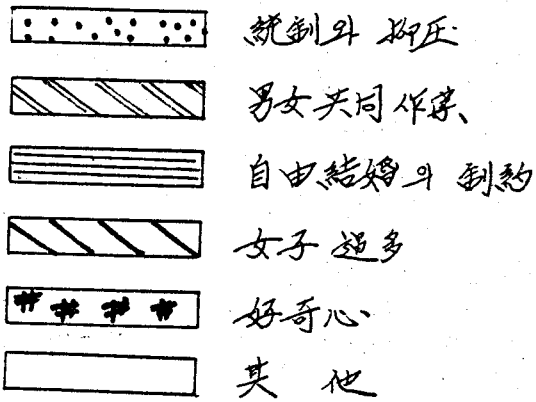 統制와 抑圧
男女共同作業、
自由結婚의 制約
女子 過多
好奇心
其 他